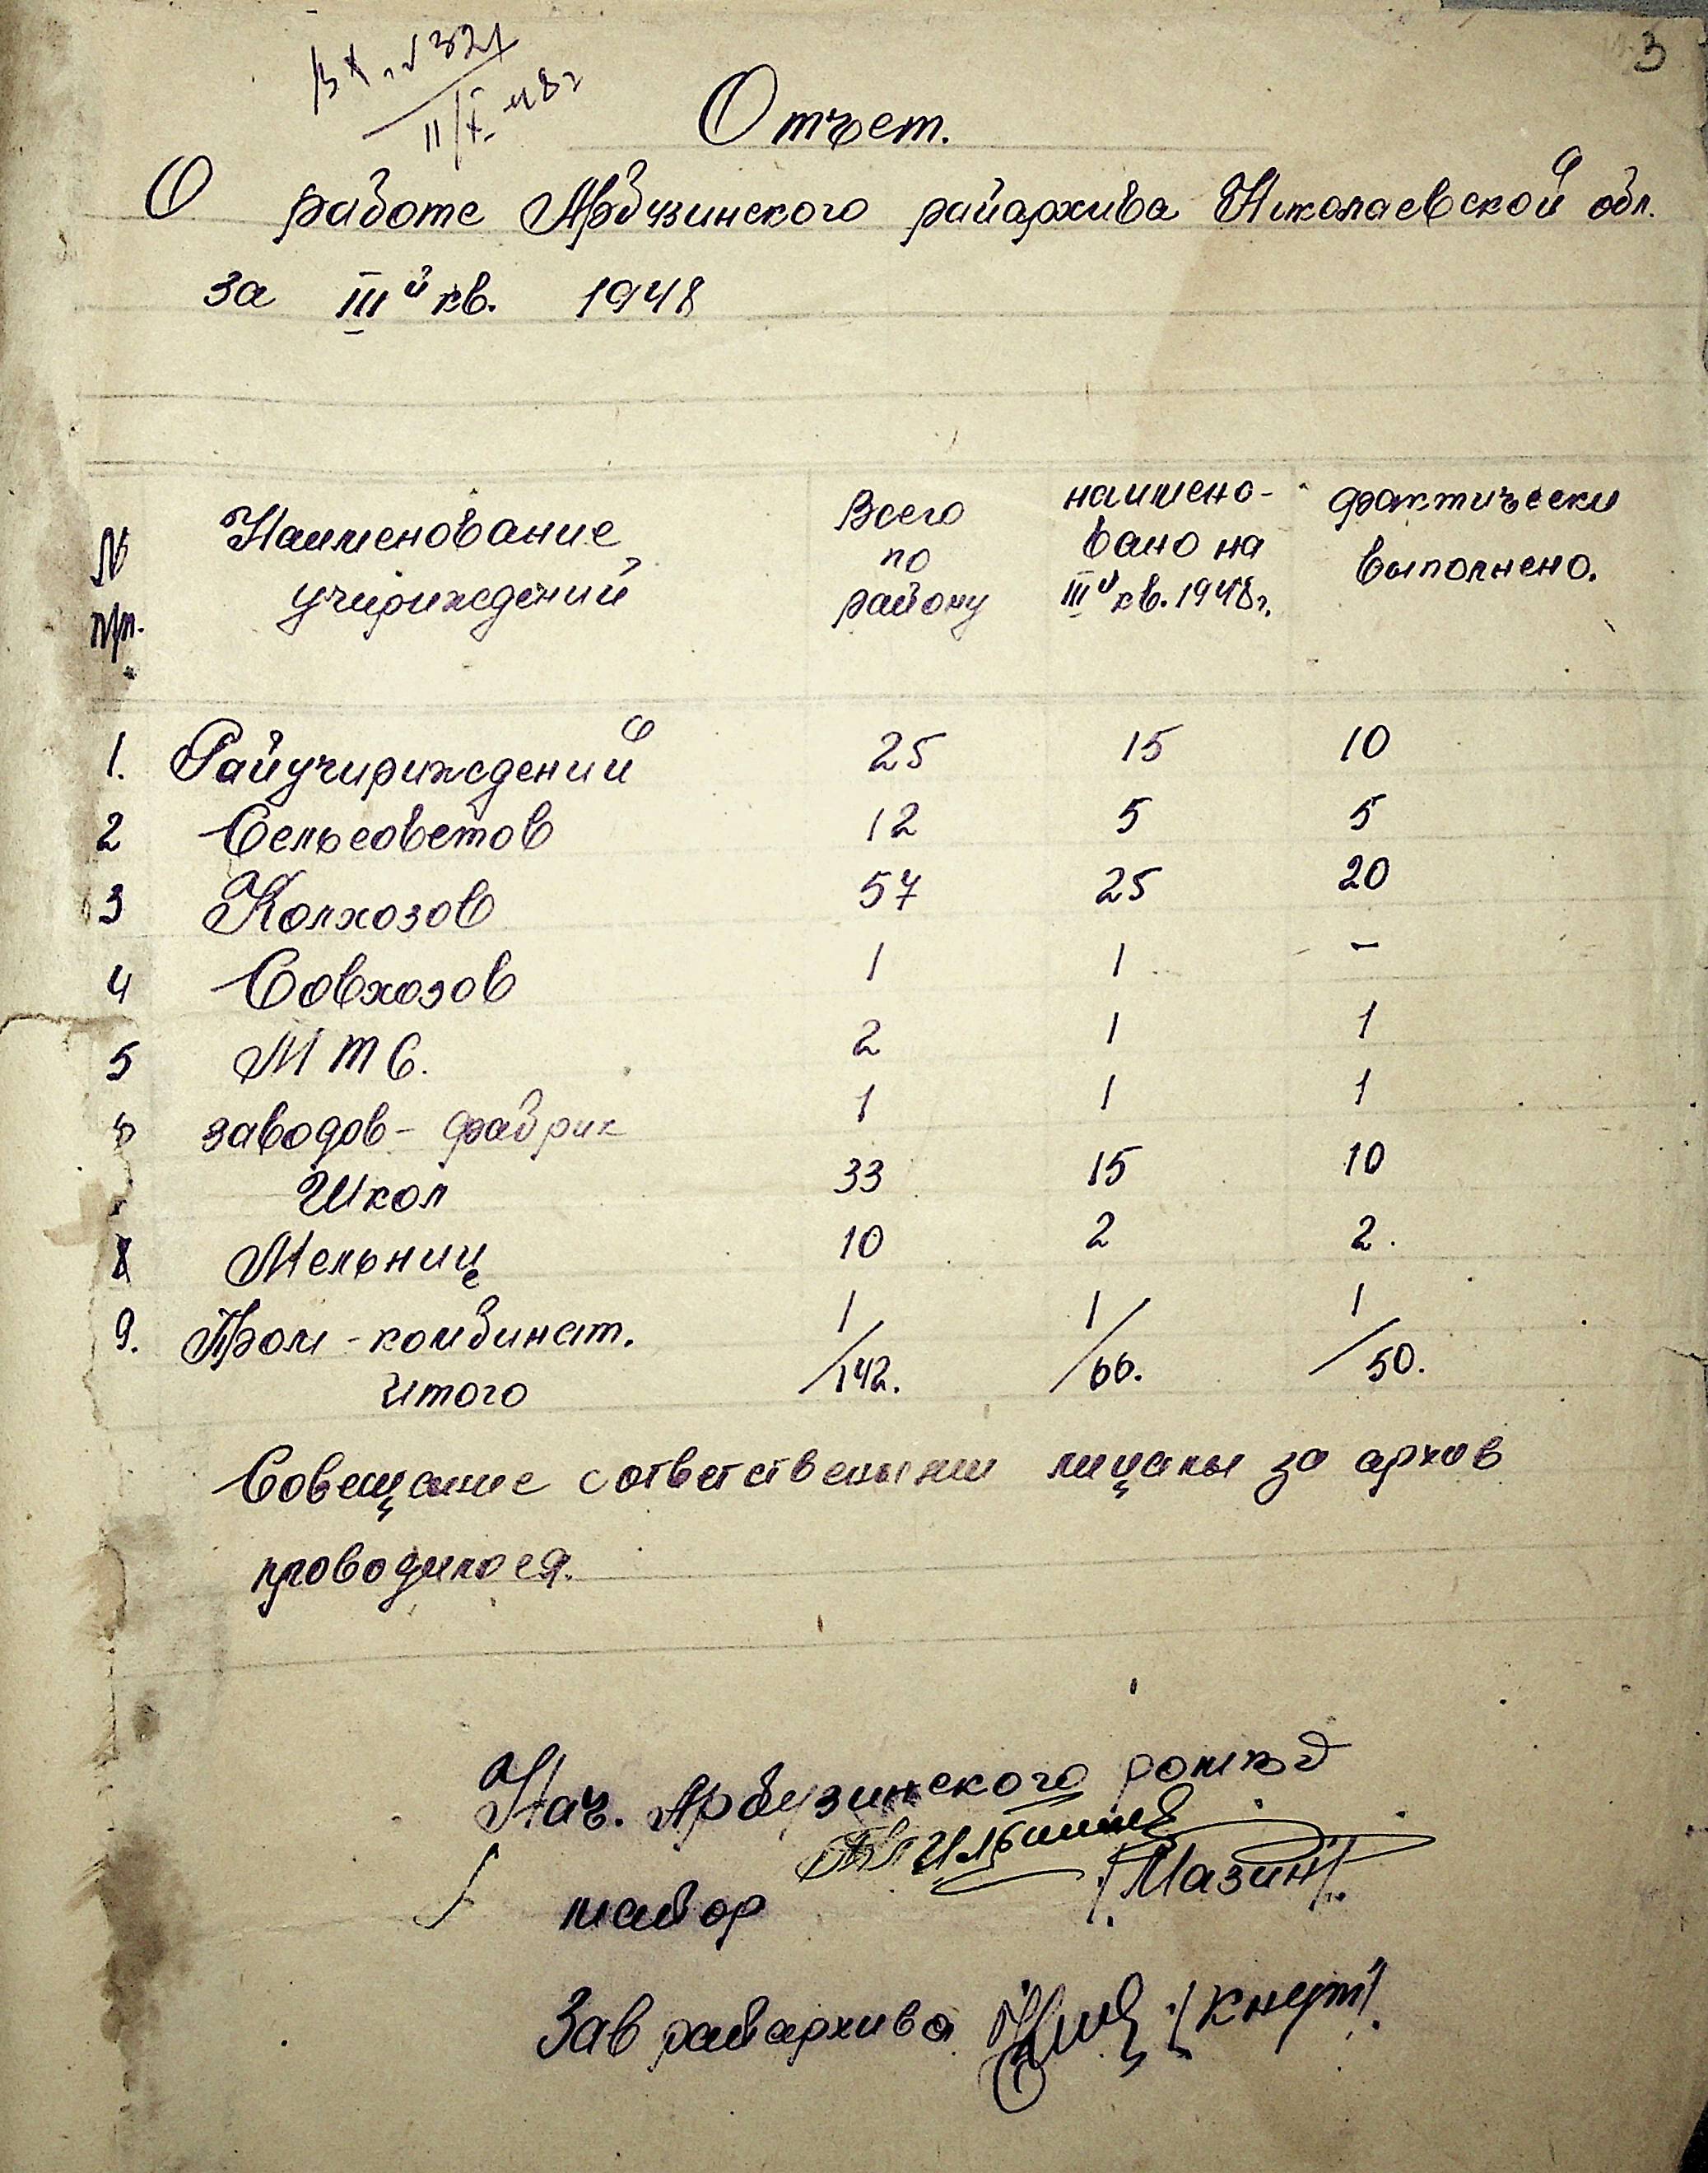 3
вх. № 321
11/X-48 г
Отчет.
О работе Арбузинского райархива Николаевской обл.
за III й кв. 1948
№ п/п. Наименование учириждений Всего по району наимено-вано на III й кв. 1948 г. фактически выполнено.
1. Райучириждений 25 15 10
2 Сельсоветов 12 5 5
3 Колхозов 57 25 20
4 Совхозов 1 1 -
5 М Т С. 2 1 1
заводов - фабрик 1 1 1
Школ 33 15 10
8 Мельниц 10 2 2.
9. Пром - комбинат. 1 1 1
Итого 142. 66. 50.
Совещание с ответствеными лицамы за архив
проводилося.
Нач. Арбузинского
майор /Мазин/.
Зав райархива /Кнут/.